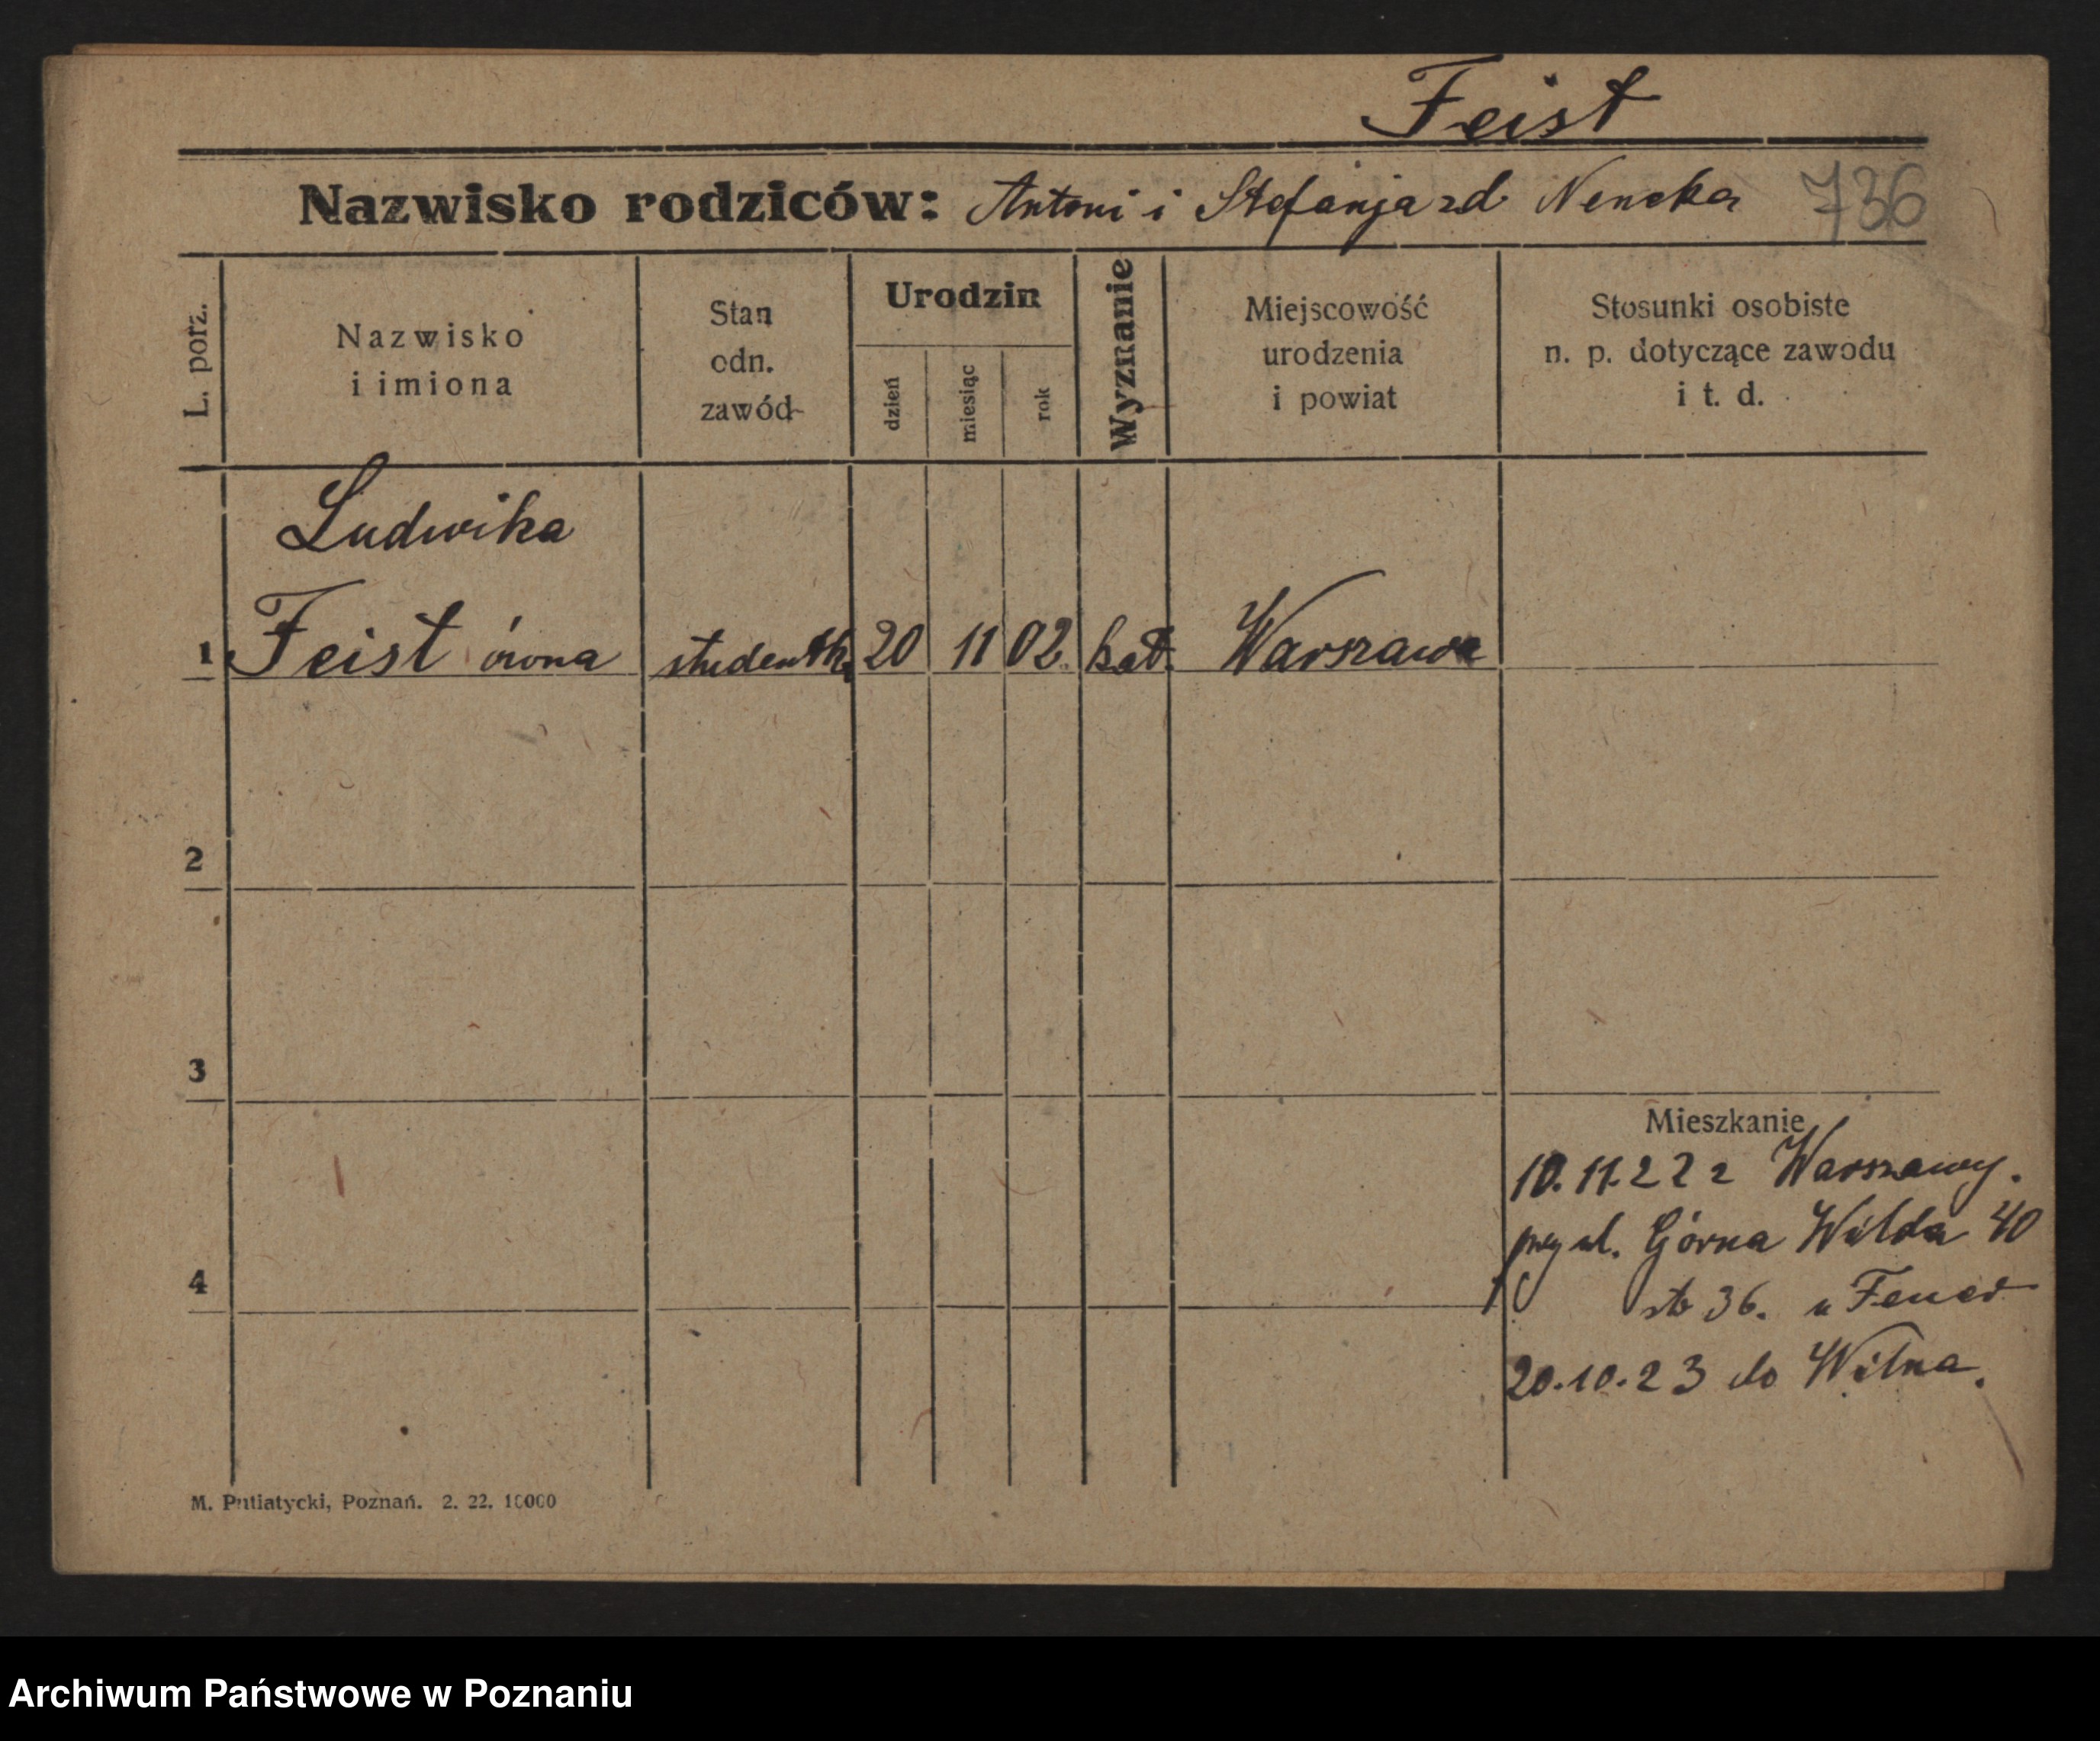 Feist
Nazwisko rodziców: Antoni i Stefanja zd Nencka 736
L. porz.
Nazwisko
i imiona
Stan
odn.
zawód
Urodzin
dzień
miesiąc
rok
Wyznanie
Miejscowość
urodzenia
i powiat
Stosunki osobiste
n. p. dotyczące zawodu
i t. d.
Ludwika
1 Feistówna studentka 20 11 02. kat. Warszawa
2
3
Mieszkanie
10.11.22 z Warszawy.
przy ul. Górna Wilda 40
4
36. u
20.10.23 do Wilna.
M. Putiatycki, Poznań. 2. 22. 10000
Archiwum Państwowe w Poznaniu